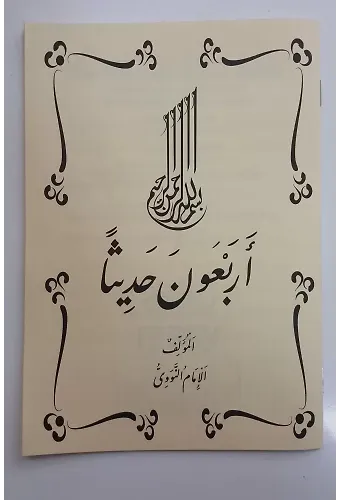 بسم الله الرحمن الرحيم
أَرْبَعُونَ حَدِيثاً
اَلْمُؤَلِّفُ
اَلْإِمَامُ النَّوَوِيُّ